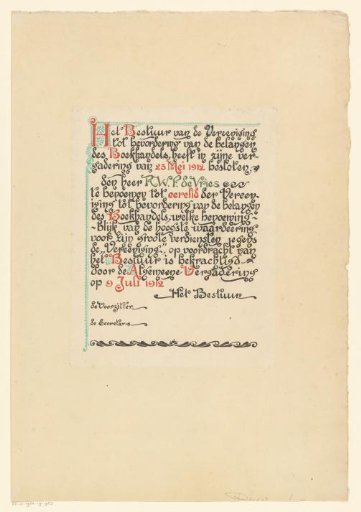 Het Bestuur van de Vereeniging
tot bevordering van de belangen
des Boekhandels, heeft in zijne ver-
gadering van 23 Mei 1912 besloten
den heer R.W.P. de Vries
te benoemen tot eerelid der Veree-
niging tot bevordering van de belangen
des Boekhandels, welke benoeming
blijk van de hoogste waardeering
voor zijn groote verdiensten jegens
de Vereeniging, op voordracht van
het Bestuur is bekrachtigd
door de Algemeene Vergadering
op 9 Juli 1912
Het Bestuur
de Voorzitter
de Secretaris